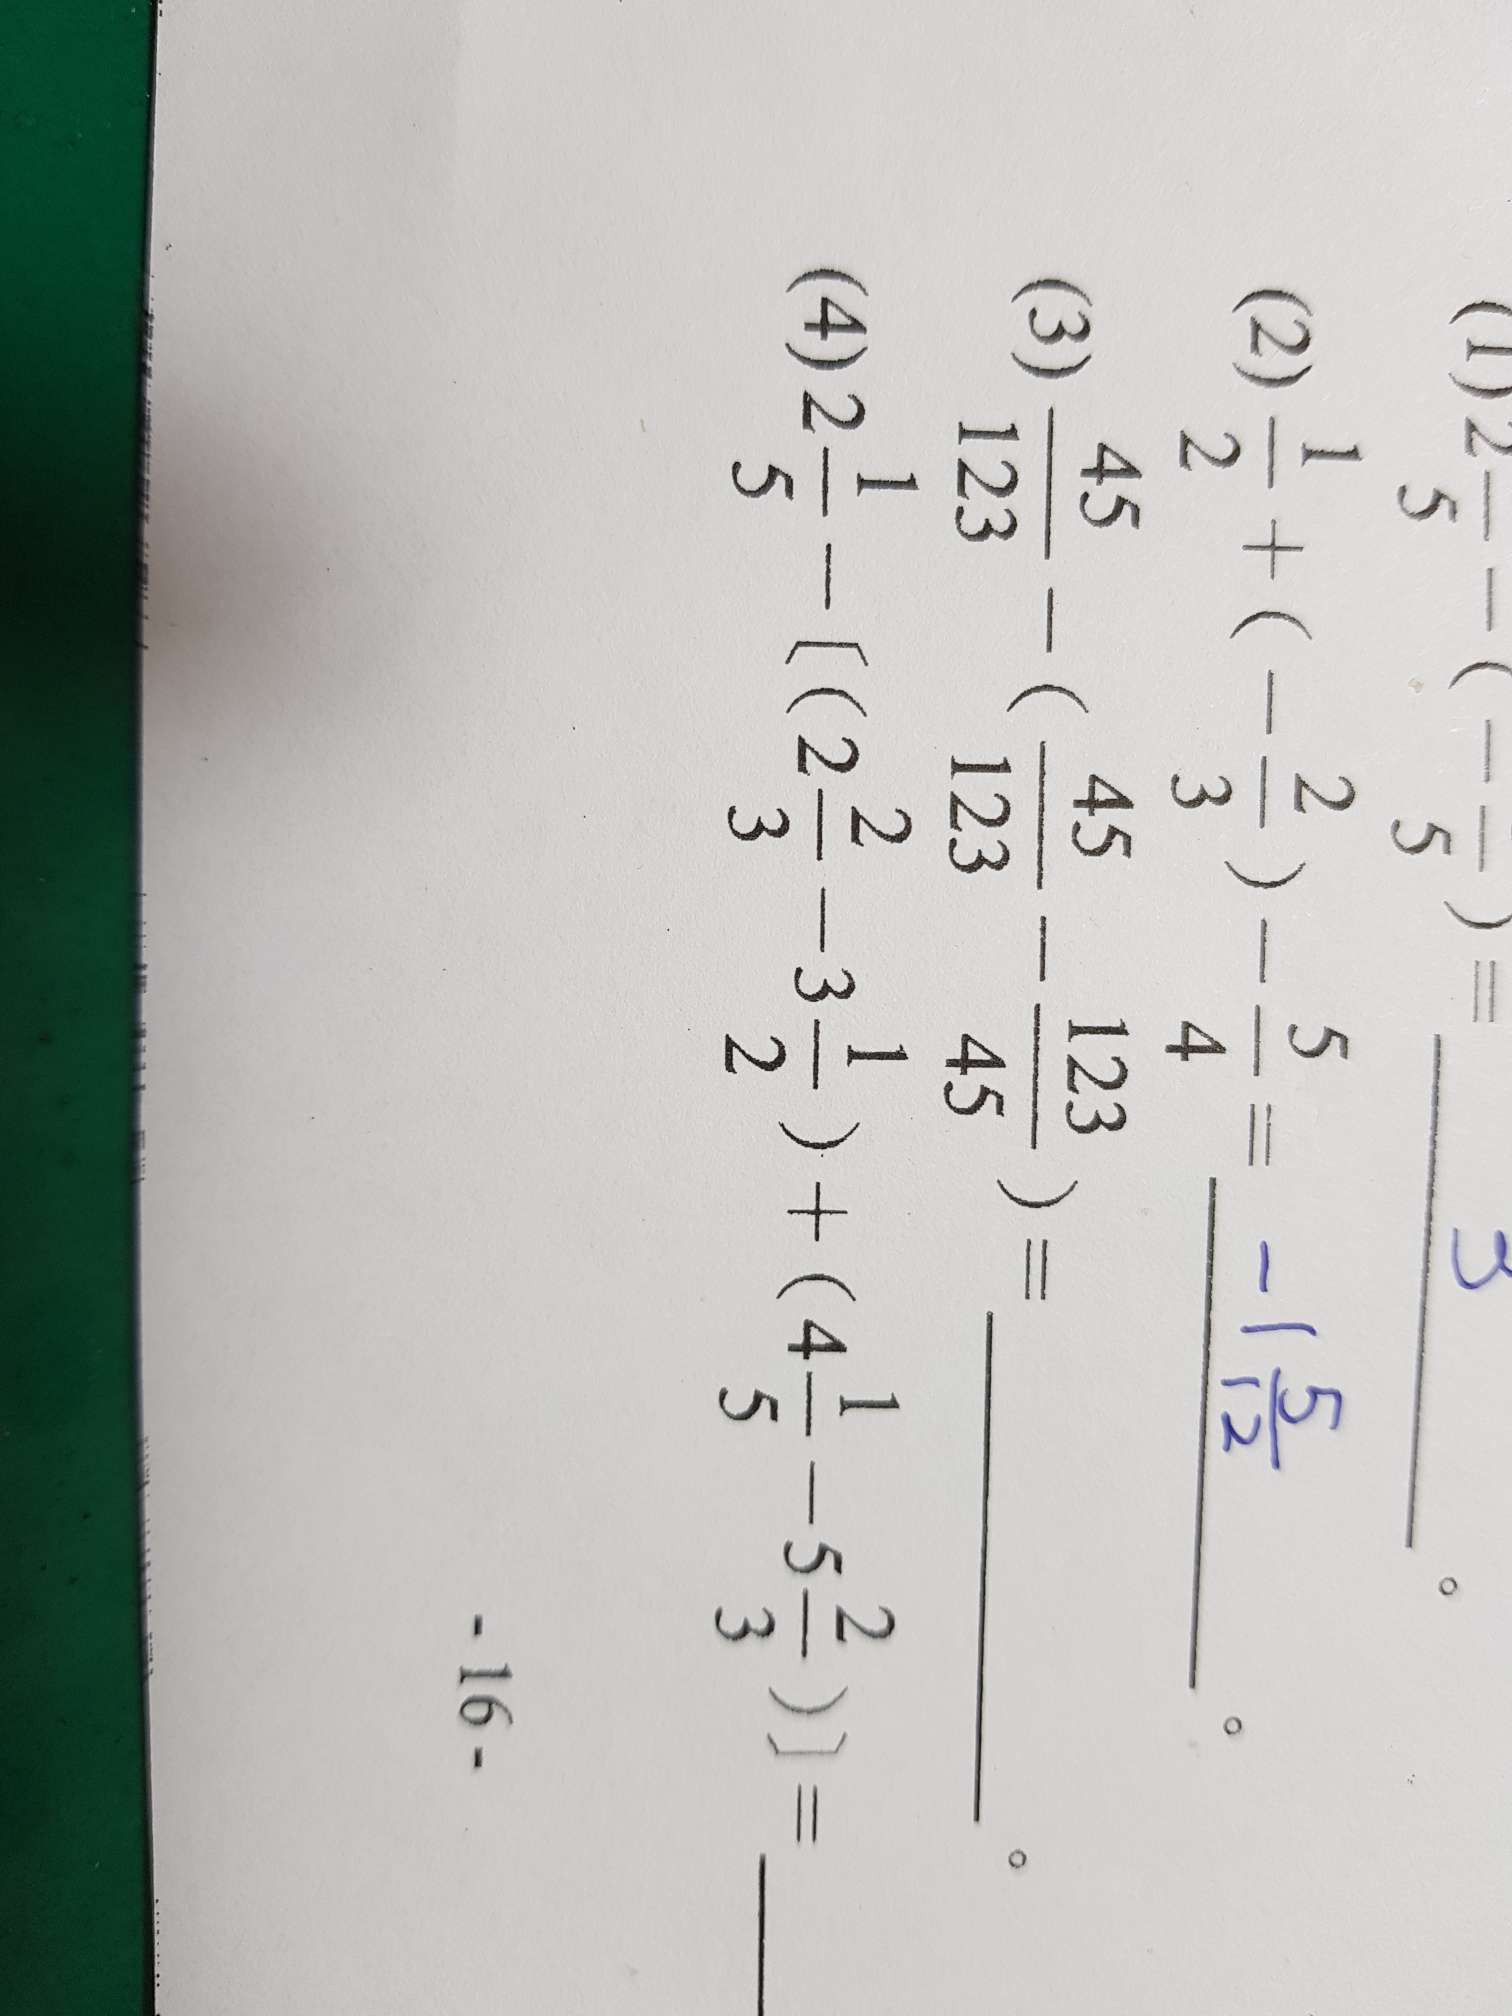 (1) 2 /5 - (- /5) = 3 。
(2) 1/2 + (-2/3) - 5/4 = -1 5/12 。
(3) 45/123 - (45/123 - 123/45) = 。
(4) 2 1/5 - [(2 2/3 - 3 1/2) + (4 1/5 - 5 2/3)] =
- 16 -